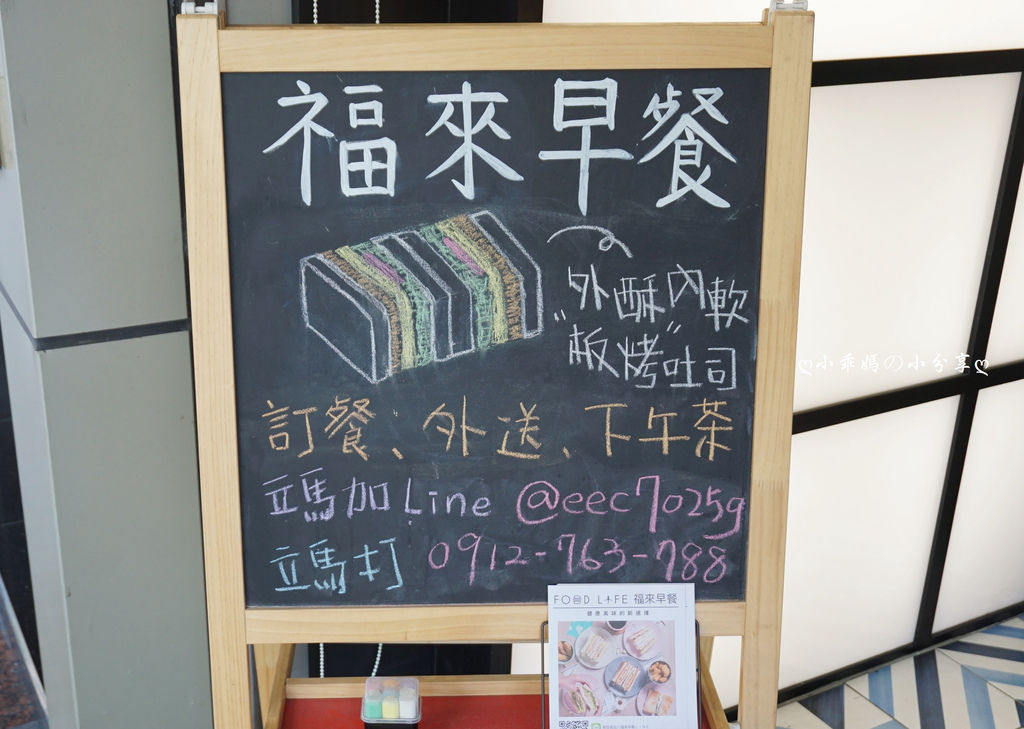 福來早餐
外酥內軟
"板烤"吐司
訂餐、外送、下午茶
立馬加Line @eec7025g
立馬打 0912-763-788
FOOD LIFE 福來早餐
健康美味的新選擇
ღ小乖媽の小分享ღ